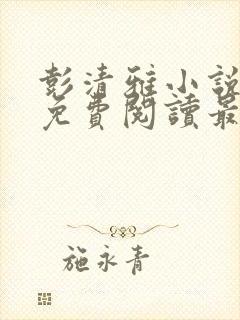 彭清雅小說
免費閱讀最
施永青